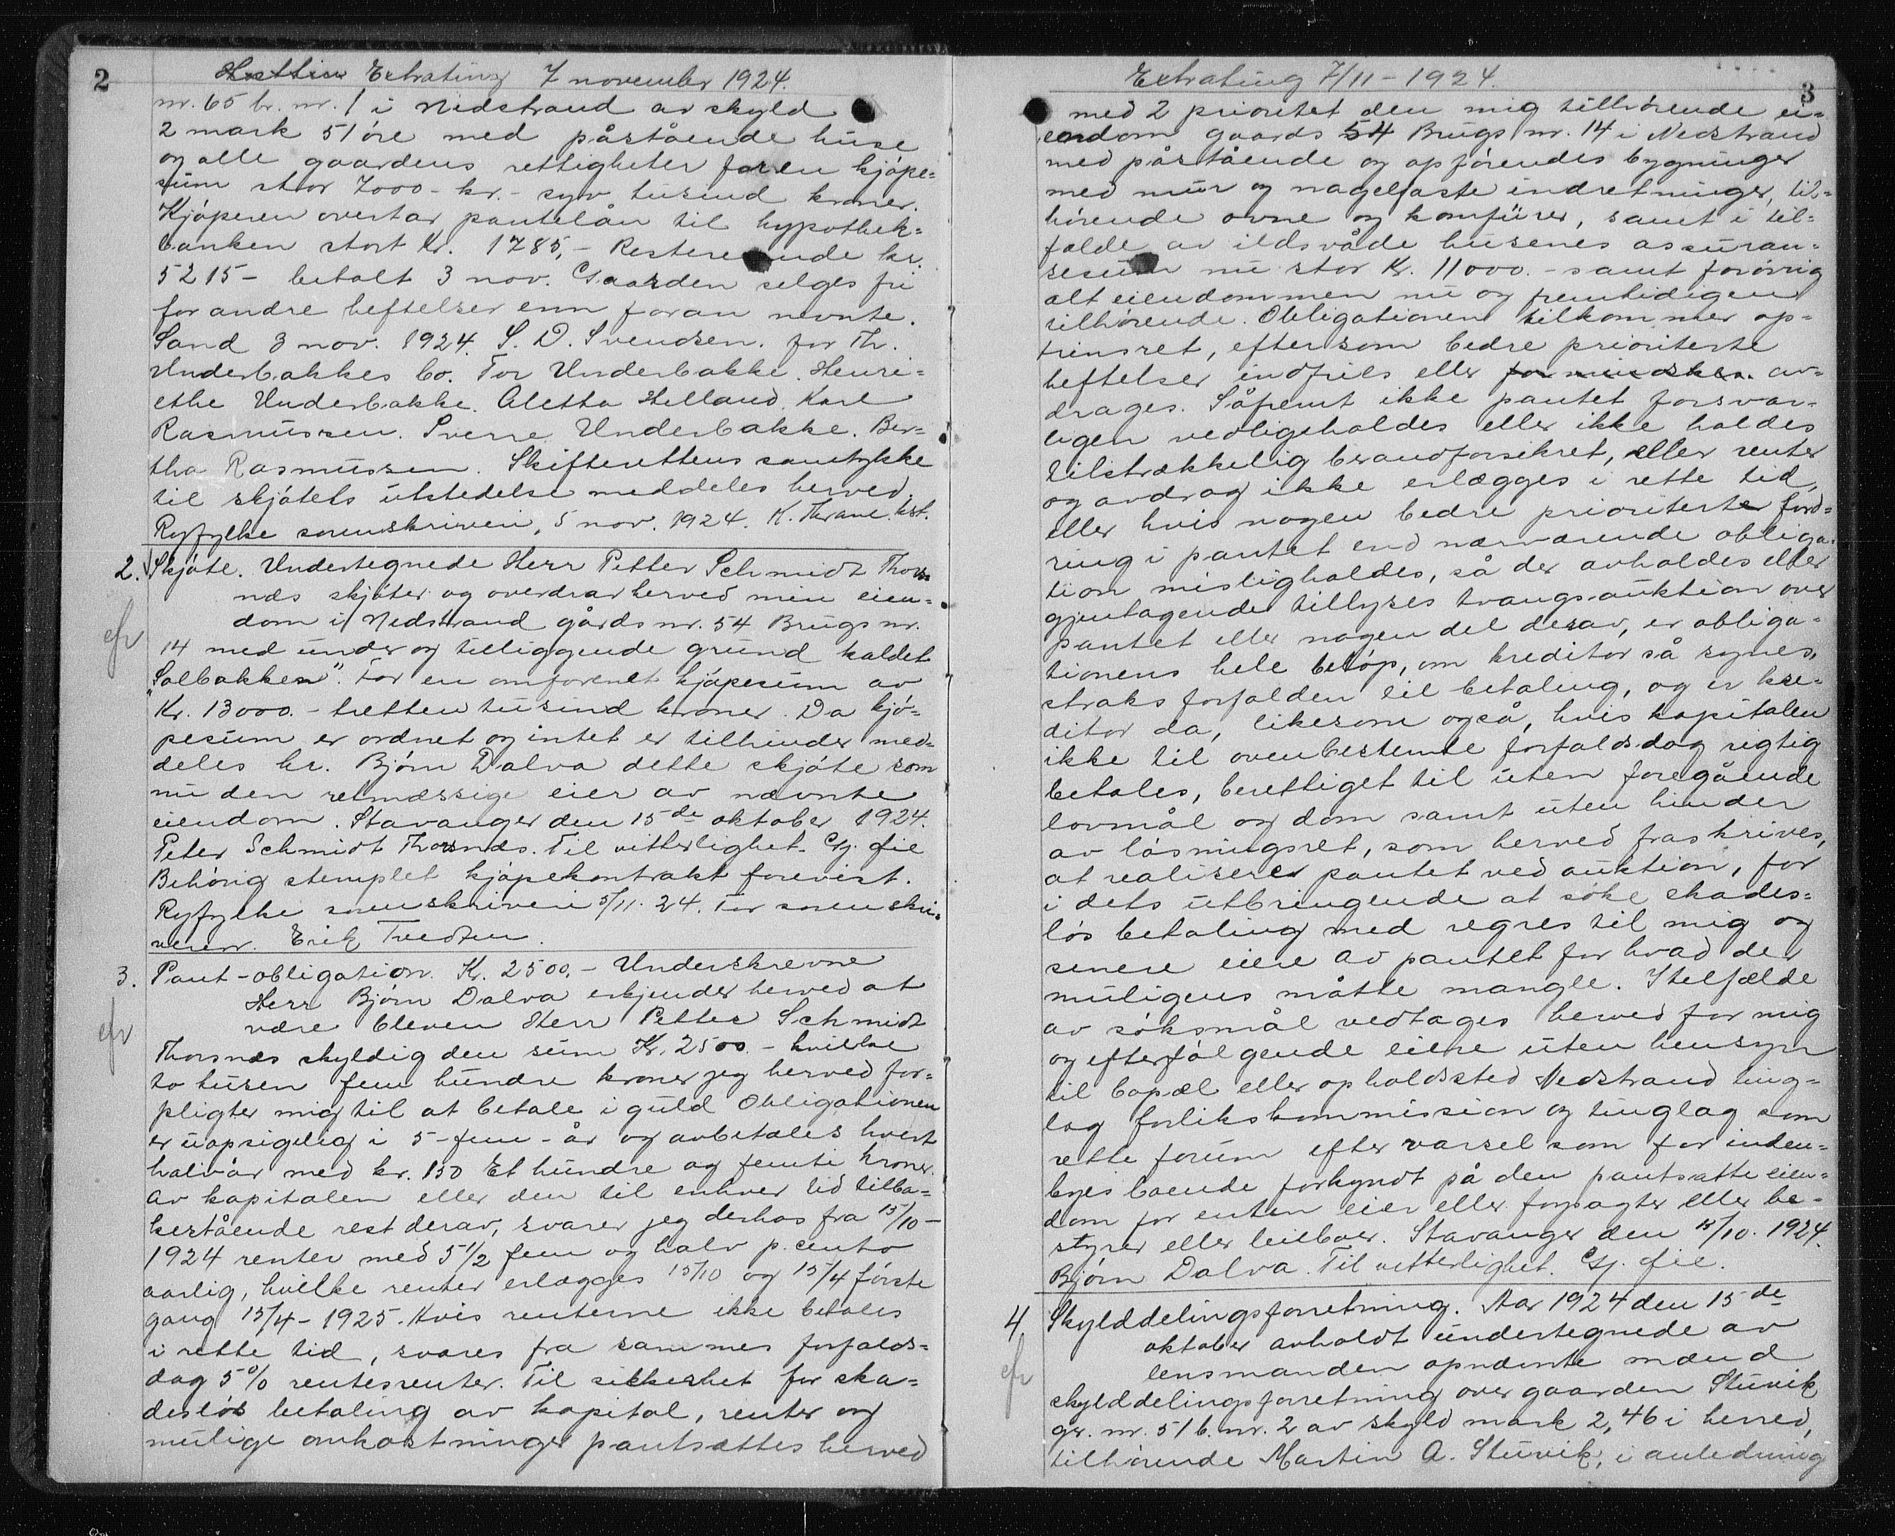 2
Extrating 7 november 1924.
nr. 65 br. nr. 1 i Nedstrand av skyld
2 mark 51 øre med påstående huse
og alle gaardens rettigheter for en kjøpe-
sum stor 7000 - kr. - syv tusind kroner.
Kjøperen overtar pantelån til hypothek-
banken stort Kr. 1785,- Resterende kr.
5215 - betalt 3 nov. Gaarden selges fri
for andre heftelser enn foran nevnte.
Sand 3 nov. 1924. S. D. Svendsen. for Th.
Underbakkes bo. Tor Underbakke. Henri-
ethe Underbakke. Aletta Helland. Karl
Rasmussen. Sverre Underbakke. Ber-
tha Rasmussen. Skifterettens samtykke
til skjøtets utstedelse meddeles herved.
Ryfylke sorenskriveri, 5 nov. 1924. K. Thrane. kst.
2. Skjøte. Undertegnede Herr Petter Schmidt Thors-
nds skjøter og overdrar herved min eien-
dom i Nedstrand gårds nr. 54 Brugs nr.
14 med under og tilliggende grund kaldet
"Solbakken". For en omforenet kjøpesum av
Kr. 13000. - tretten tusind kroner. Da kjø-
pesum er ordnet og intet er tilhinder med-
deles hr. Bjørn Dalva dette skjøte som
nu den retmæssige eier av nævnte
eiendom. Stavanger den 15de oktober 1924.
Peter Schmidt Thorsnds. Til vitterlighet.
Behørig stemplet kjøpekontrakt forevist.
Ryfylke sorenskriveri 5/11. 24. For sorenskri-
veren. Erik Tvedten.
3. Pant-obligation. Kr. 2500,- Underskrevne
Herr Bjørn Dalva erkjender herved at
være bleven Herr Petter Schmidt
Thorsnds skyldig den sum Kr. 2500 - hvilke
to tusen fem hundre kroner jeg herved for-
pligter mig til at betale i guld Obligationen
er uopsigelig i 5-fem-år og avbetales hvert
halvår med kr. 150 Et hundre og femti kroner.
av kapitalen eller den til enhver tid tilba-
kestående rest derav, svarer jeg derhos fra 15/10 -
1924 renter med 5 1/2 fem og halv p. cento
aarlig, hvilke renter erlægges 15/10 og 15/4 første
gang 15/4 - 1925. Hvis renterne ikke betales
i rette tid, svares fra sammes forfalds-
dag 5% rentesrenter. Til sikkerhet for ska-
desløs betaling av kapital, renter og
mulige omkostninger pantsættes herved
3
Extrating 7/11 - 1924.
med 2 prioritet den mig tilhørende ei-
endom gaards 54 Brugs nr. 14 i Nedstrand
med påstående og opførendes bygninger
med mur og nagelfaste indretninger, til-
hørende ovne og komfürer, samt i til-
fælde av ildsvåde husenes assuran-
sesum nu stor Kr. 11000. - samt forøvrig
alt eiendommen nu og fremtidigen
tilhørende. Obligationen tilkommer op-
trinsret, eftersom bedre prioriterte
heftelser indfries eller formindskes. av-
drages. Såfremt ikke pantet forsvar-
ligen vedligeholdes eller ikke holdes
tilstrækkelig brandforsikret, eller renter
og avdrag ikke erlægges i rette tid,
eller hvis nogen bedre prioriterte ford-
ring i pantet end nærværende obliga-
tion misligholdes, så der avholdes eller
gjentagende tillyses tvangsauktion over
pantet eller nogen del derav, er obliga-
tionens hele beløp, om kreditor så synes,
straks forfalden til betaling, og er kre-
ditor da, likesom også, hvis kapitalen
ikke til ovenbestemte forfaldsdag rigtig
betales, berettiget til uten foregående
lovmål og dom samt uten hinder
av løsningsret, som herved fraskrives,
at realisere pantet ved auktion, for
i dets utbringende at søke skades-
løs betaling med regres til mig og
senere eiere av pantet for hvad der
muligens måtte mangle. I tilfælde
av søksmål vedtages herved for mig
og efterfølgende eiere uten hensyn
til bopæl eller opholdssted Nedstrand ting-
lag forlikskommission og tinglag som
rette forum efter varsel som for inden-
byes boende forkyndt på den pantsatte eien-
dom for enten eier eller forpagter eller be-
styrer eller leilboer. Stavanger den 15/10. 1924.
Bjørn Dalva. Til vitterlighet.
4. Skylddelingsforretning. Aar 1924 den 15de
oktober avholdt undertegnede av
lensmanden opnævnte mænd
skylddelingsforretning over gaarden Stuvik
gr. nr. 51 b. nr. 2 av skyld mark 2,46 i herred,
tilhørende Martin A. Stuvik, i anledning